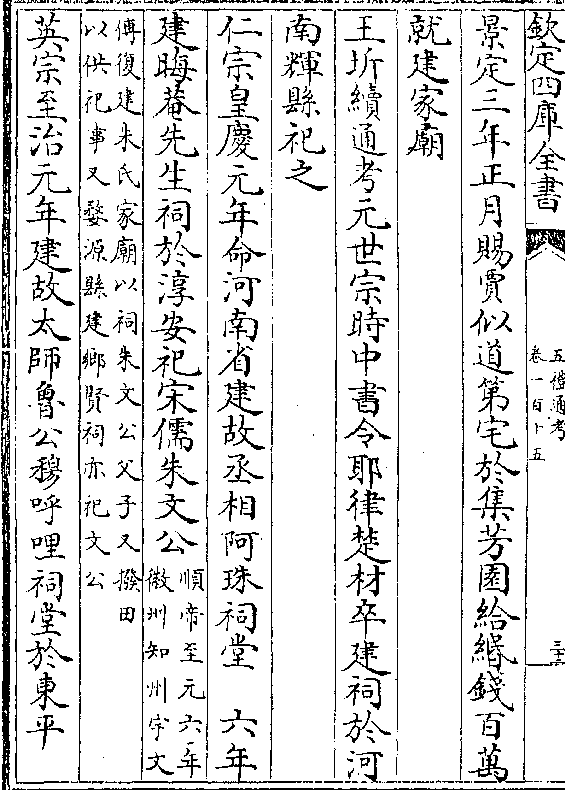 欽定四庫全書
五禮通考
卷一百十五
三十三
景定三年正月賜賈似道第宅於集芳園給緡錢百萬
就建家廟
王圻續通考元世宗時中書令耶律楚材卒建祠於河
南輝縣祀之
仁宗皇慶元年命河南省建故丞相阿珠祠堂　六年
建晦菴先生祠於淳安祀宋儒朱文公
順帝至元六年
徽州知州宇文
傅復建朱氏家廟以祠朱文公父子又撥田
以供祀事又婺源縣建鄉賢祠亦祀文公
英宗至治元年建故太師魯公穆呼哩祠堂於東平